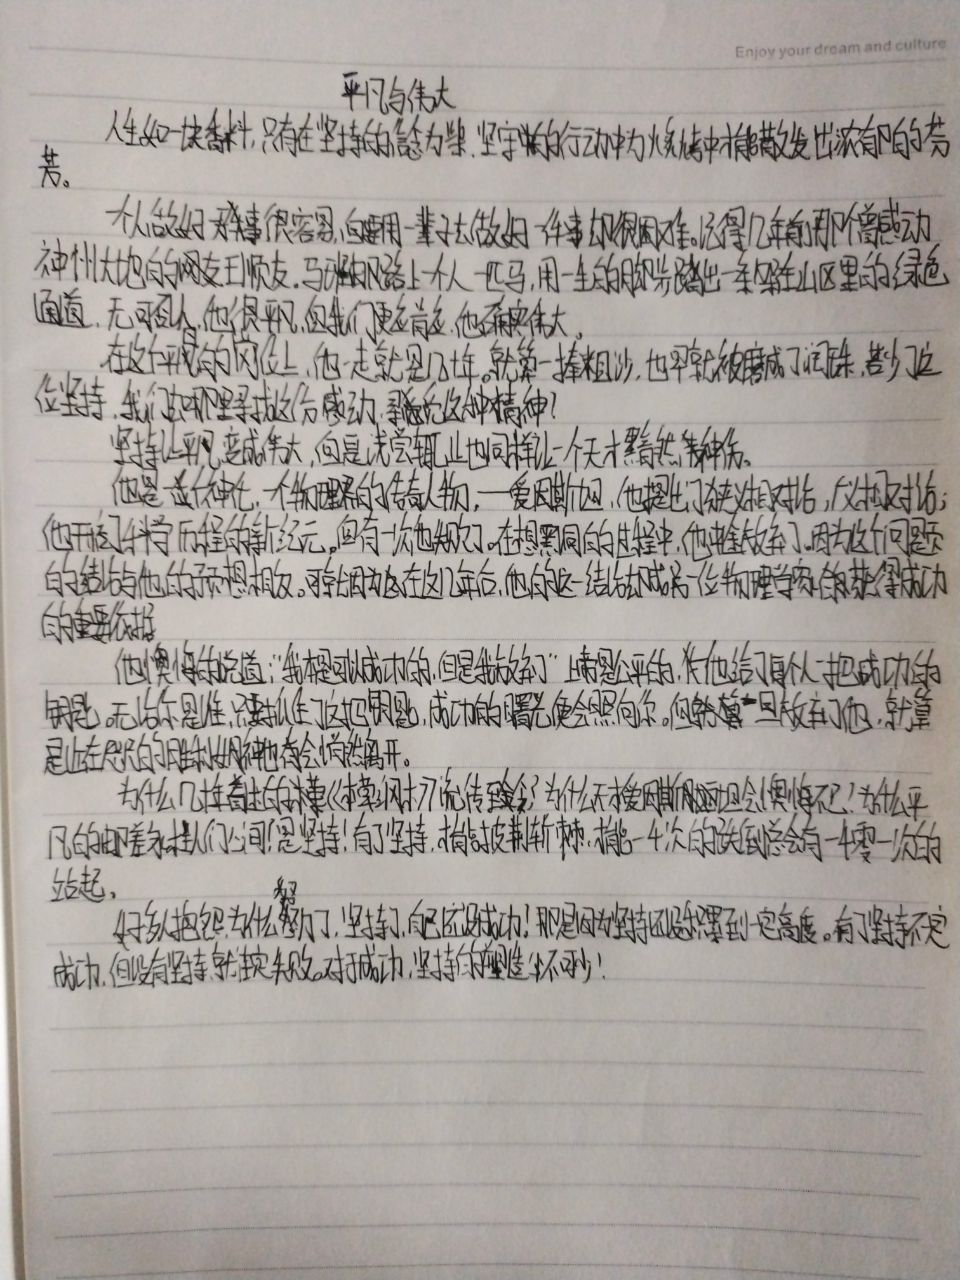 Enjoy your dream and culture
平凡与伟大
人生如一块香料,只有在坚持的信念为柴,坚定的行动中为火焚烤中才能散发出浓郁的芬
芳。
一个人做好一件事很容易,但要用一辈子去做好一件事却很困难。记得几年前那个曾感动
神州大地的的网友王顺友。马班邮路上一个人一匹马,用一生的脚步踏出一条路在山区里的绿色
通道,无可否认,他很平凡,但我们更应肯定,他确实伟大。
在这个平凡的岗位上,他一走就是几十年。就算一捧粗沙,也早就被磨成了润珠,若少了这
位坚持,我们去哪里寻找这份感动,寻觅这种精神?
坚持让平凡变成伟大,但是浅尝辄止也同样让一个天才黯然神伤。
他是一个神化,一个物理界的传奇人物,——爱因斯坦,他提出了狭义相对论,广义相对论;
他开创了科学历程的新纪元。但有一次他失败了。在想黑洞的的过程中,他中途放弃了。因为这个问题
的的结论与他的预想相反。可就因为这在这几年后,他的这一结论却成为一位物理学家的获得成功
的的重要依据
他懊悔的说道:“我本是可以成功的,但是我放弃了”上帝是公平的,他给了每个人一把成功的
钥匙。无论你是谁,只要抓住了这把钥匙,成功的曙光便会照向你。但一旦放弃了他,就算
是近在咫尺的胜利女神也会悄然离开。
为什么几堆着的《本草纲木》流传至今?为什么天才爱因斯坦会懊悔不已!为什么平
凡的的邮差永挂人们心间!是坚持!有了坚持,才能披荆斩棘,才能一千次的跌倒总会有一千零一次的
站起。
好多人抱怨为什么努力了,坚持了,自己还没成功!那是因为坚持还没积累到一定高度。有了坚持不一定
成功,但没有坚持,就注定失败。对于成功,坚持的塑造必不可少!